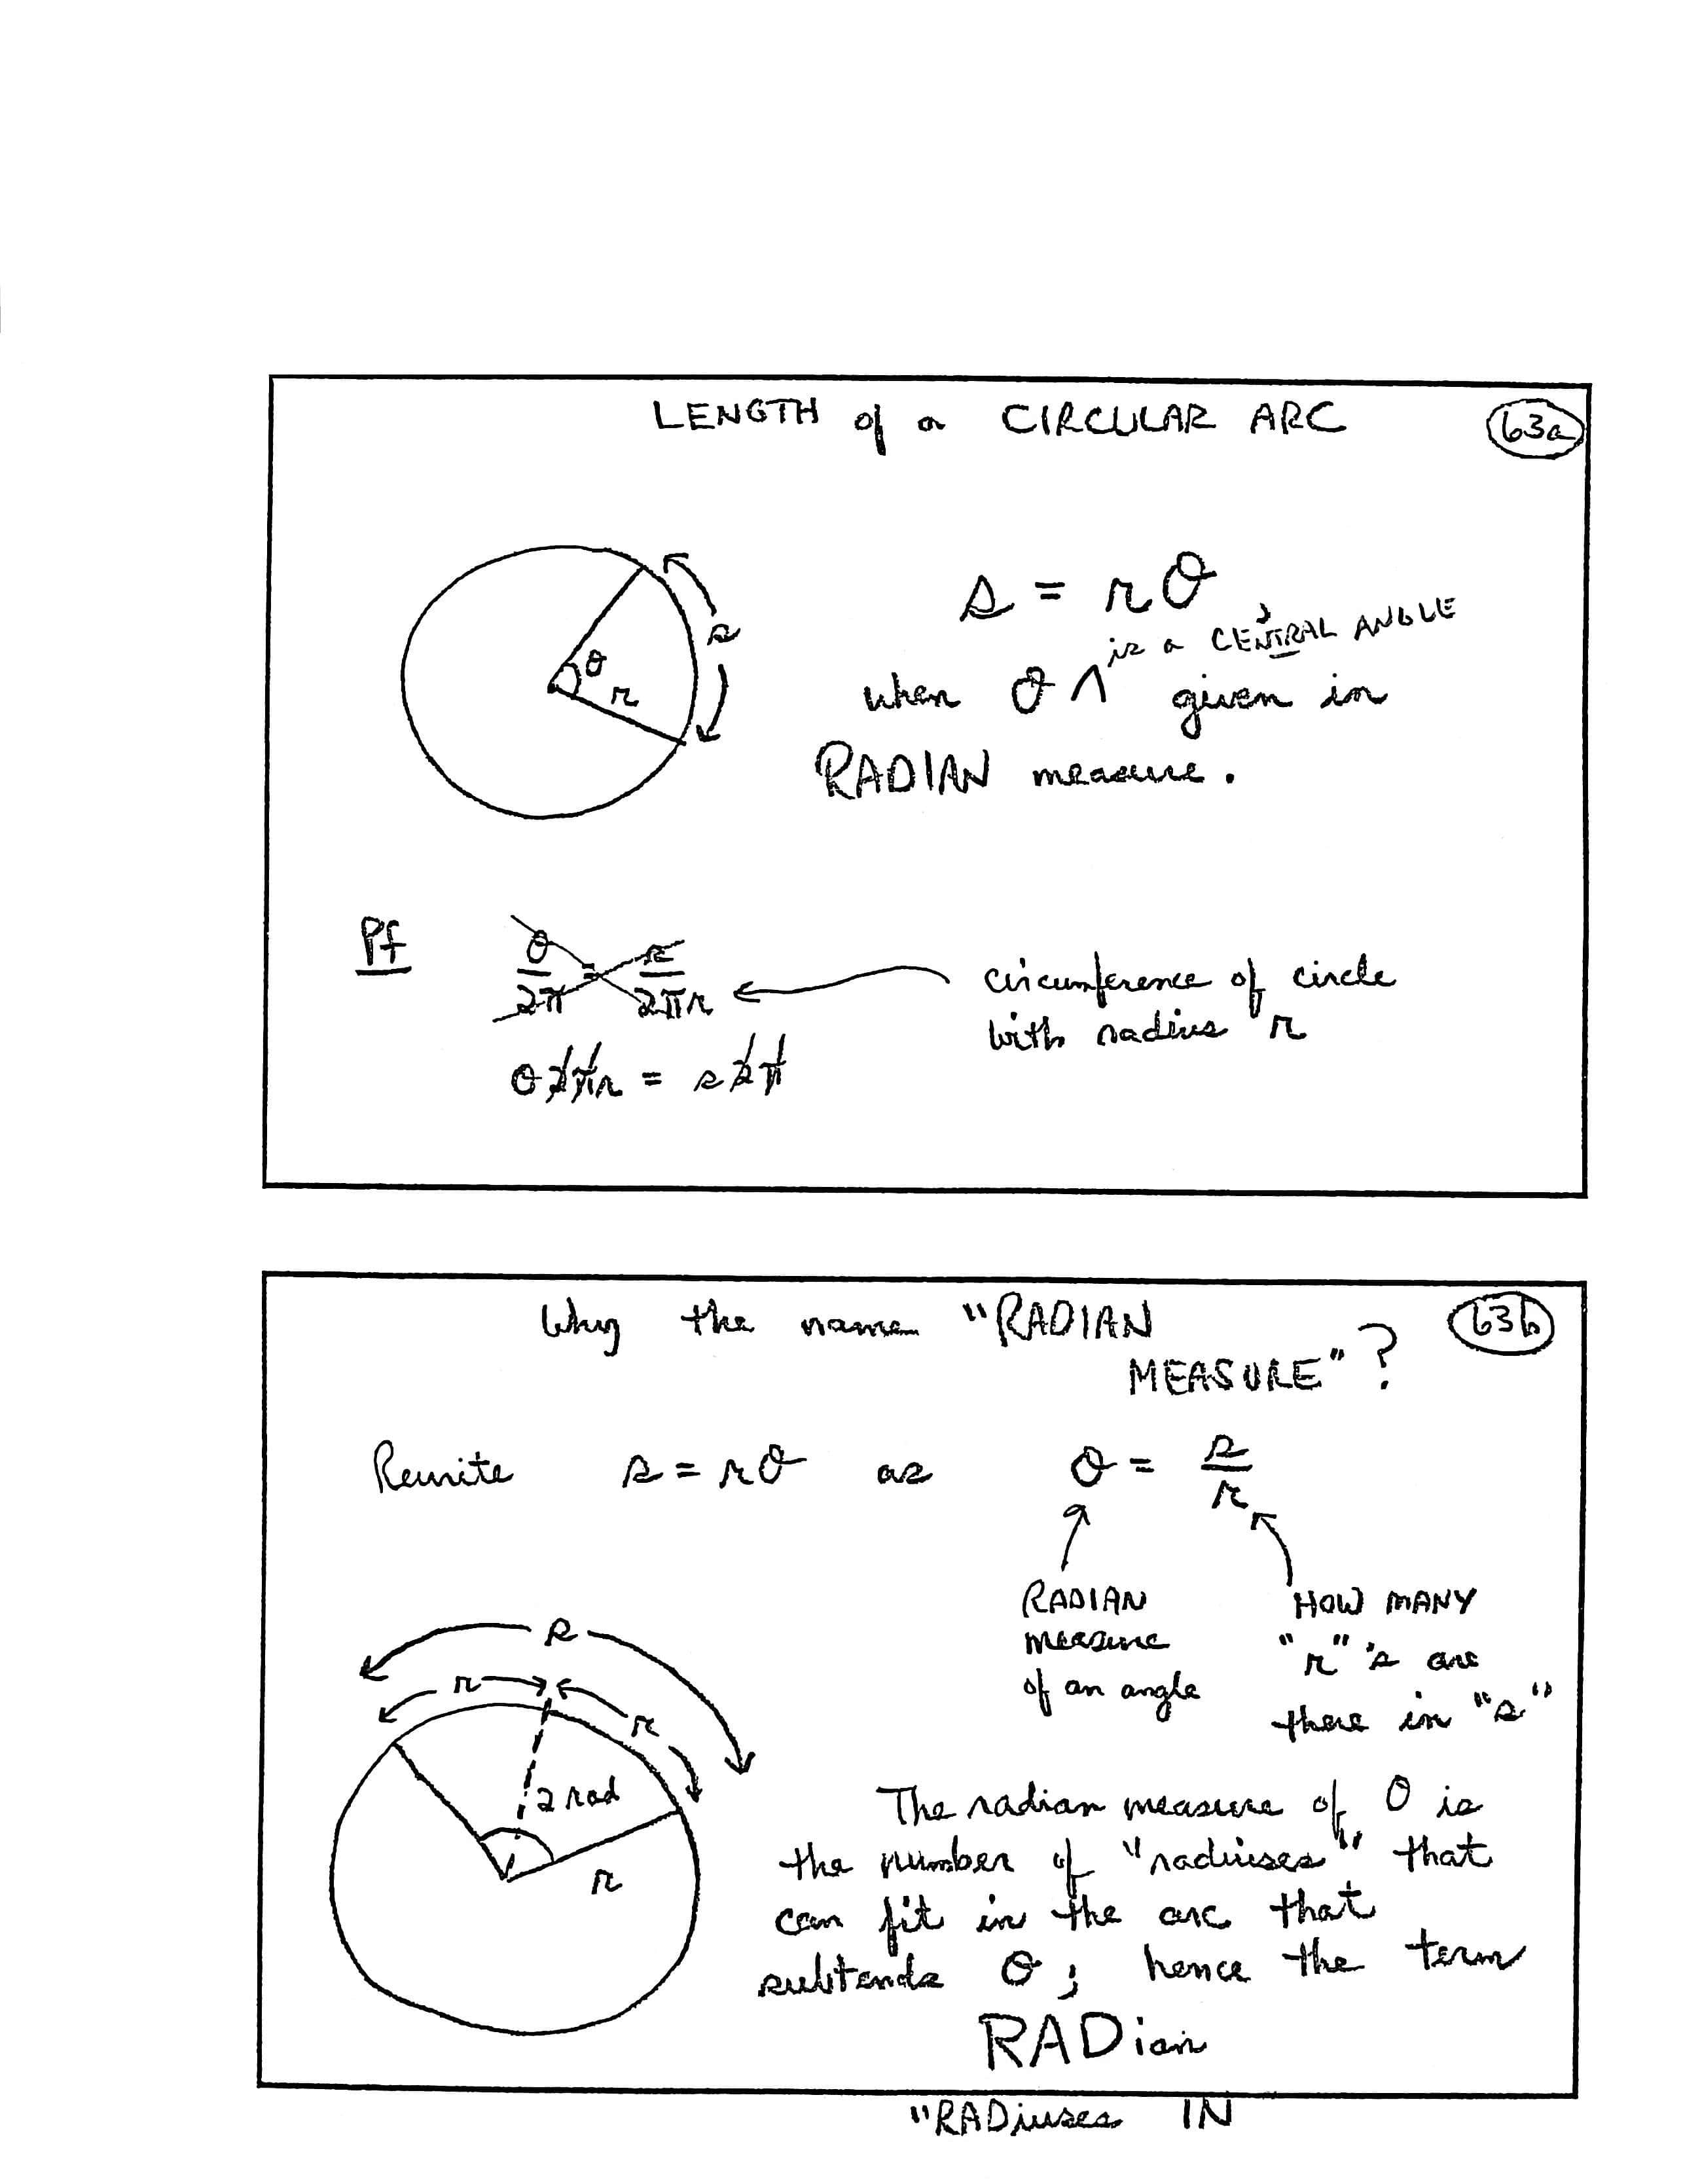 LENGTH of a CIRCULAR ARC
63a
s = rθ
is a CENTRAL ANGLE
when θ ∧ given in
RADIAN measure.
s
θ
r
Pf
θ/2π = s/2πr
circumference of circle
with radius r
θ2πr = s2π
Why the name "RADIAN
MEASURE"?
63b
Rewrite s = rθ as θ = s/r
RADIAN
measure
of an angle
HOW MANY
"r"'s are
there in "s"
s
r
r
2 rad
r
The radian measure of θ is
the number of "radiuses" that
can fit in the arc that
subtends θ; hence the term
RADian
"RADiuses IN